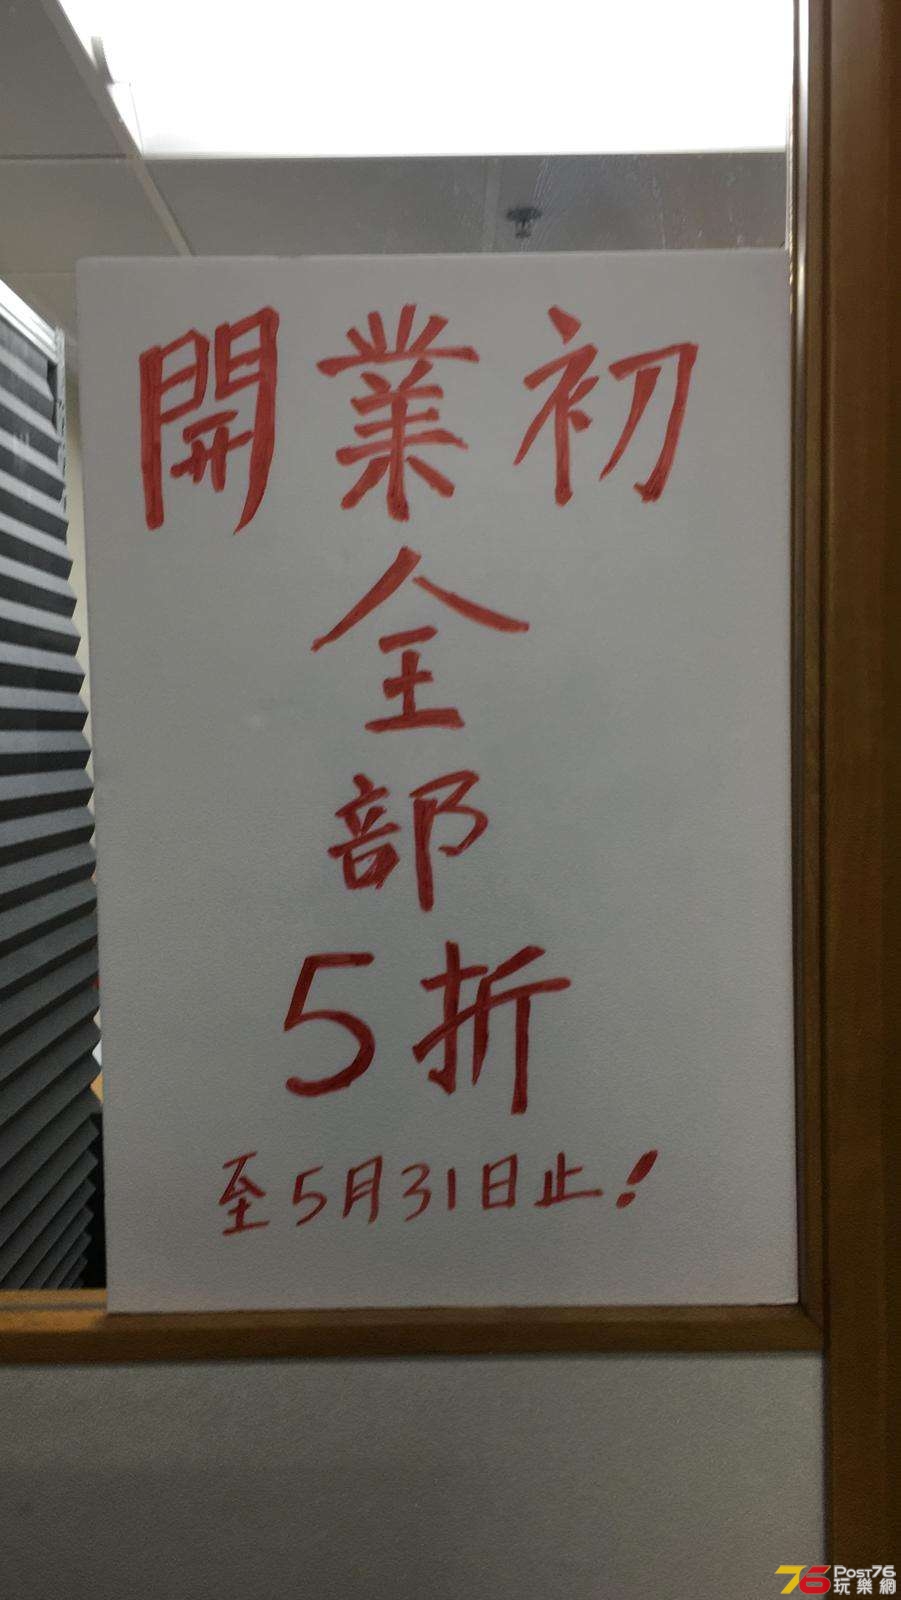 開業初
全
部
5折
至5月31日止！
76 Post76
玩樂網